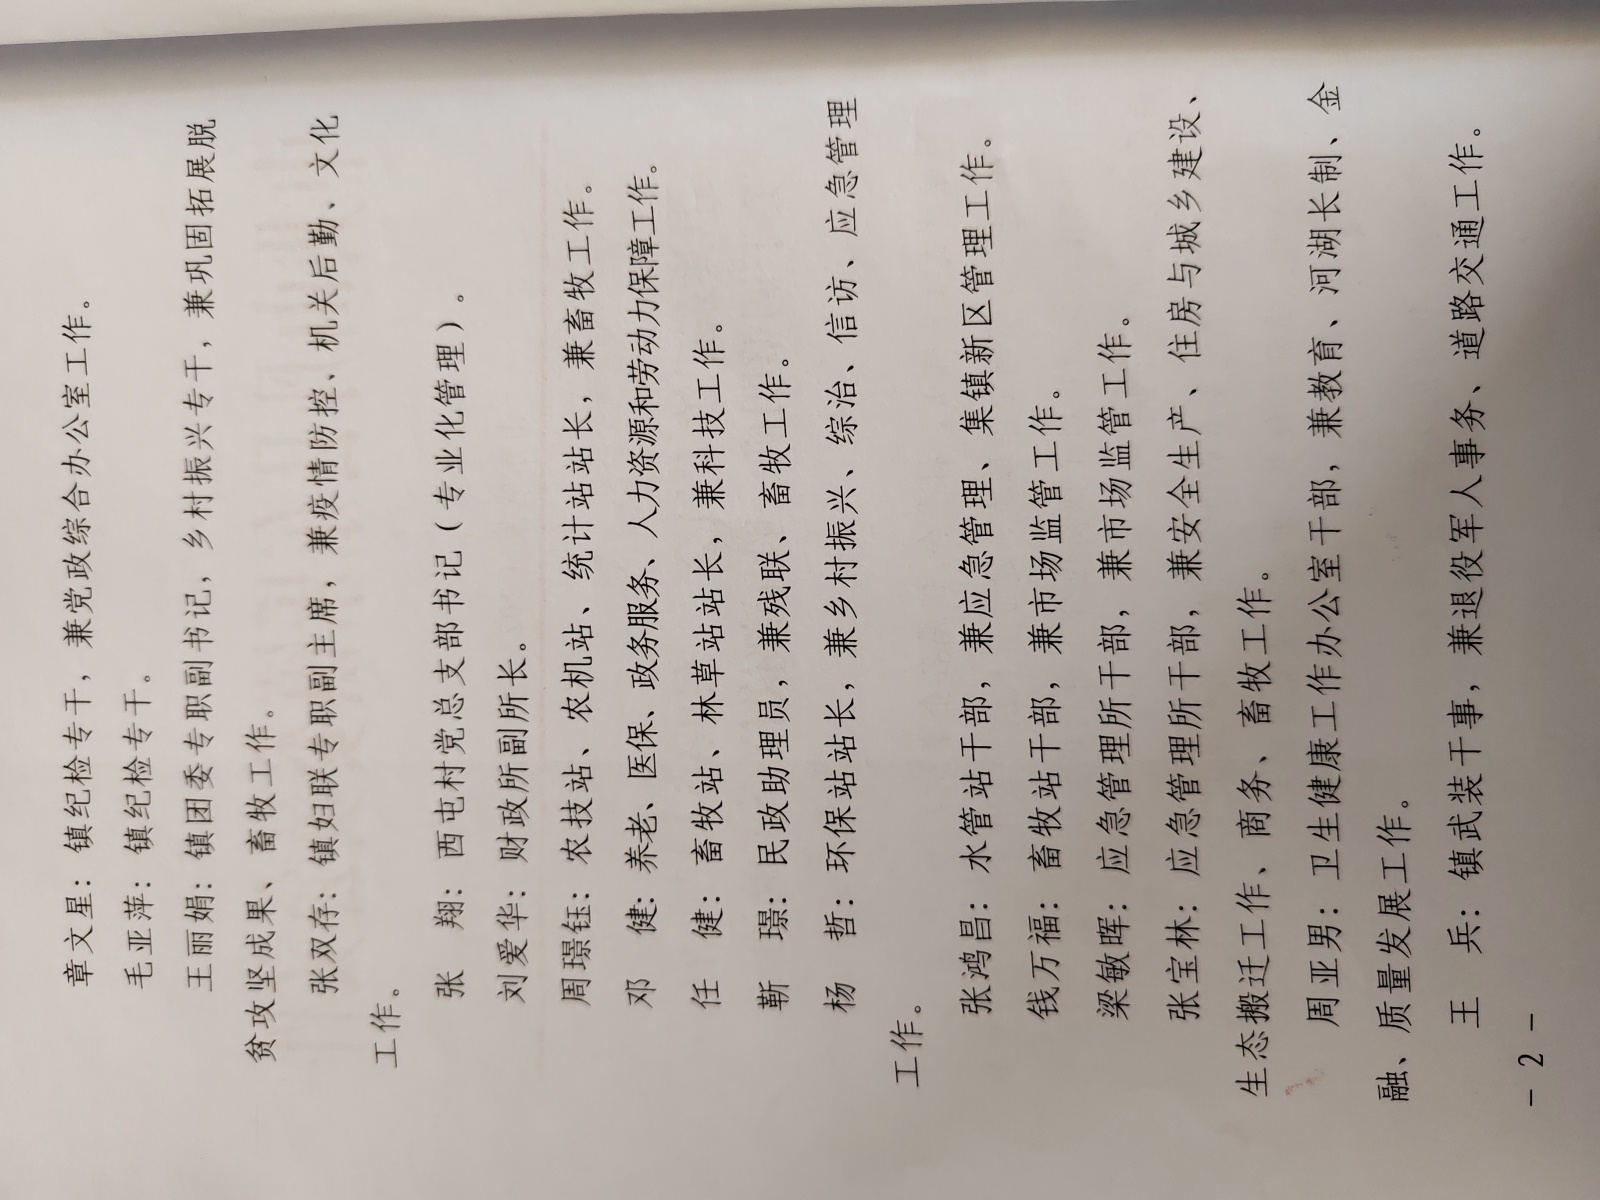 章文星：镇纪检专干，兼党政综合办公室工作。
毛亚萍：镇纪检专干。
王丽娟：镇团委专职副书记，乡村振兴专干，兼巩固拓展脱
贫攻坚成果、畜牧工作。
张双存：镇妇联专职副主席，兼疫情防控、机关后勤、文化
工作。
张　翔：西屯村党总支部书记（专业化管理）。
刘爱华：财政所副所长。
周璟钰：农技站、农机站、统计站站长，兼畜牧工作。
邓　健：养老、医保、政务服务、人力资源和劳动力保障工作。
任　健：畜牧站、林草站站长，兼科技工作。
靳　璟：民政助理员，兼残联、畜牧工作。
杨　哲：环保站站长，兼乡村振兴、综治、信访、应急管理
工作。
张鸿昌：水管站干部，兼应急管理、集镇新区管理工作。
钱万福：畜牧站干部，兼市场监管工作。
梁敏晖：应急管理所干部，兼市场监管工作。
张宝林：应急管理所干部，兼安全生产、住房与城乡建设、
生态搬迁工作、商务、畜牧工作。
周亚男：卫生健康工作办公室干部，兼教育、河湖长制、金
融、质量发展工作。
王　兵：镇武装干事，兼退役军人事务、道路交通工作。
— 2 —